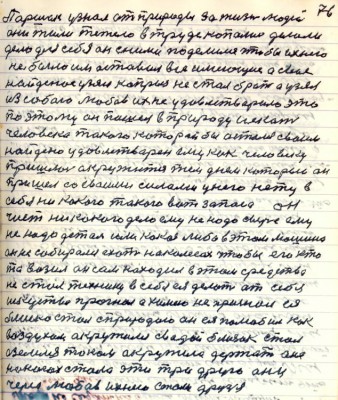 76
Паршек узнал от природы за жизнь людей
они жили тяжело в труде копались делали
дело для себя он с ними поделился чтобы у них его
не было им оставил все имеющие а свое
найденое узял капрыз не стал брать а узял
из собою любов их не удовлетварило это
поэтому он пошел в природу искать
человека такого который бы остался своим
найдено удовлитварен ему как человеку
пришлось окружится тем днем которы он
пришел со своими силами у него нету в
себя ни какого такого вот запаса он
чист никакого дело ему не надо сырье ему
не надо деталя или какая либо в этом машина
он не собирался ехать на колесах чтобы его кто
то возил он сам находил в этом средства
не стал технику в себя вделать от себя
искуство прогнал а химию не признал ся
близко стал с природою он ся полюбил как
воздухом окружился с водой близак стал
а землия током окружила держать она
на ногах стала эти три друга они
через любов их него стали друзя